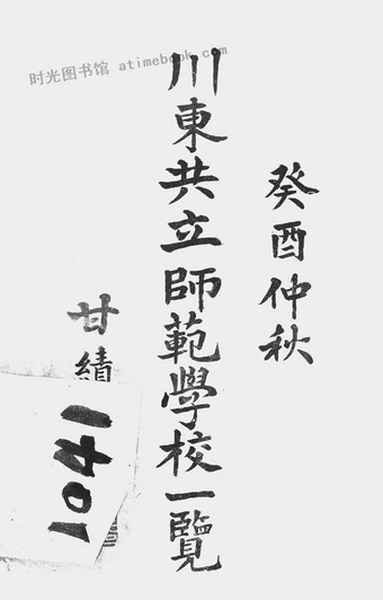 时光图书馆 atimebook.com
癸酉仲秋
川東共立師範學校一覽
甘績
1041